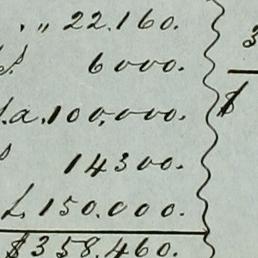 „ 22.160.
6000.
.a. 100,000.
14300.
L. 150.000.
$358.460.
3
$